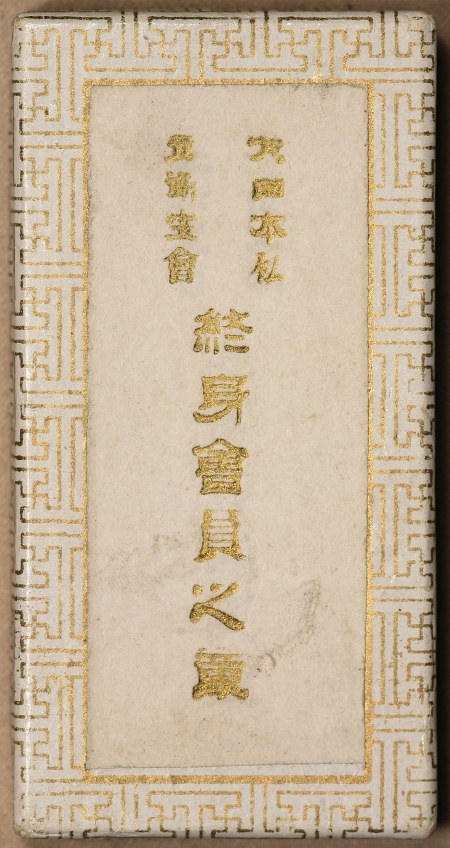 大日本私
立衛生會
終身會員之章